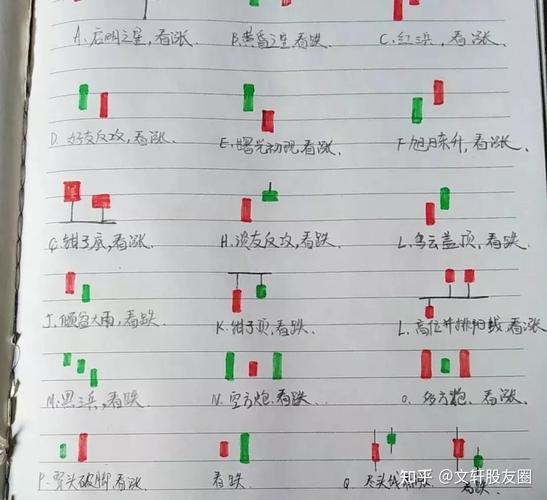 A. 启明之星,看涨.
B. 黄昏之星 看跌.
C. 红三兵,看涨.
D. 好友反攻,看涨.
E. 曙光初现,看涨.
F. 旭日东升,看涨.
G. 钳子底,看涨.
H. 淡友反攻,看跌.
L. 乌云盖顶,看跌.
J. 倾盆大雨,看跌.
K. 钳子顶,看跌.
L. 高位并排阳线 看涨
M. 黑三兵,看跌.
N. 空方炮.看跌.
O. 多方炮.看涨.
P. 穿头破脚 看涨.
看跌.
Q.
看跌
知乎 @文轩股友圈